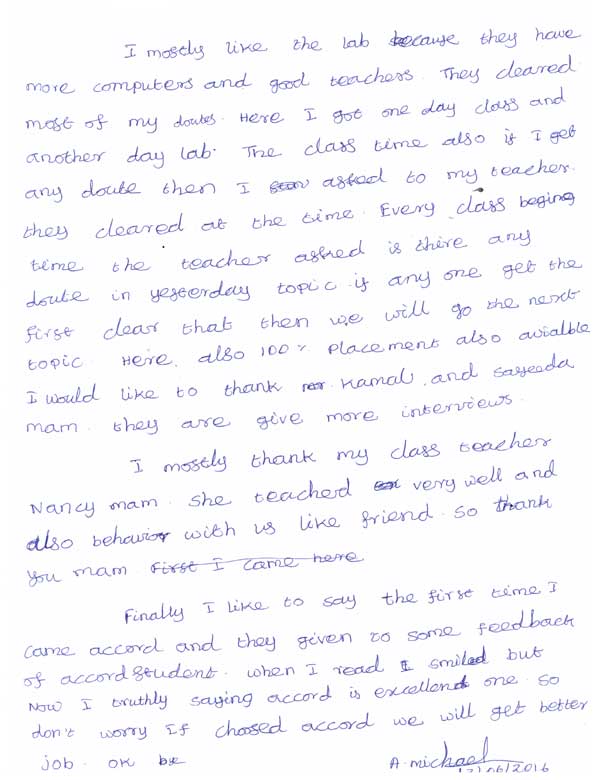 I mostly like the lab because they have
more computers and good teachers. They cleared
most of my doutes. Here I got one day class and
another day lab. The class time also if I get
any doute then I asked to my teacher.
they cleared at the time. Every class beging
time the teacher asked is there any
doute in yesterday topic if any one get the
first clear that then we will go the next
topic. Here also 100% Placement also avialble
I would like to thank mr. Kamal, and Sayeeda
mam. they are give more interviews.
I mostly thank my class teacher
Nancy mam. she teached very well and
also behavior with us like friend. so thank
you mam First I came here
Finally I like to say the first time I
came accord and they given to some feedback
of accord student. when I read I smiled but
Now I truthly saying accord is excellend one. so
don't worry If choosed accord we will get better
job. ok
A. michael
/06/2016